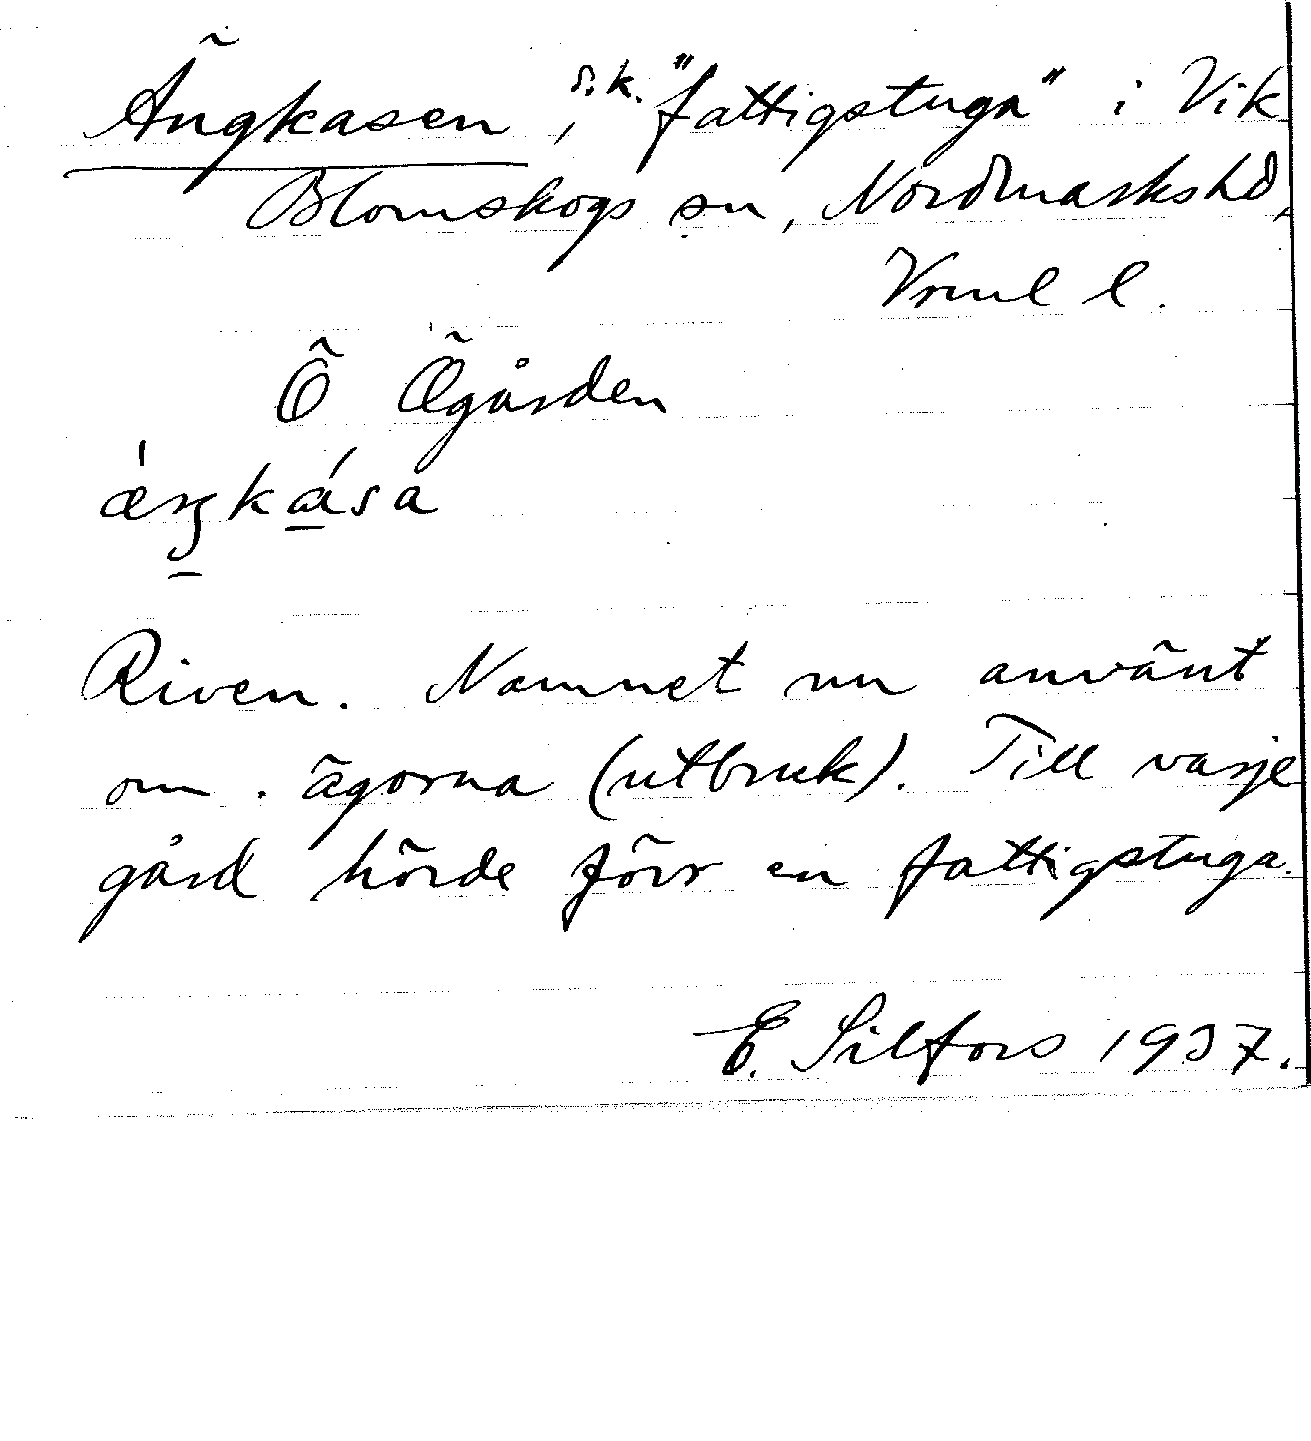 Ängkasen, s.k. "fattigstuga" i Vik
Blomskogs sn, Nordmarks hd,
Vrml l.
Ö Ögården
ǽŋkása
Riven. Namnet nu använt
om . ägorna (utbruk). Till varje
gård hörde förr en fattigstuga.
E. Silfors 1937.